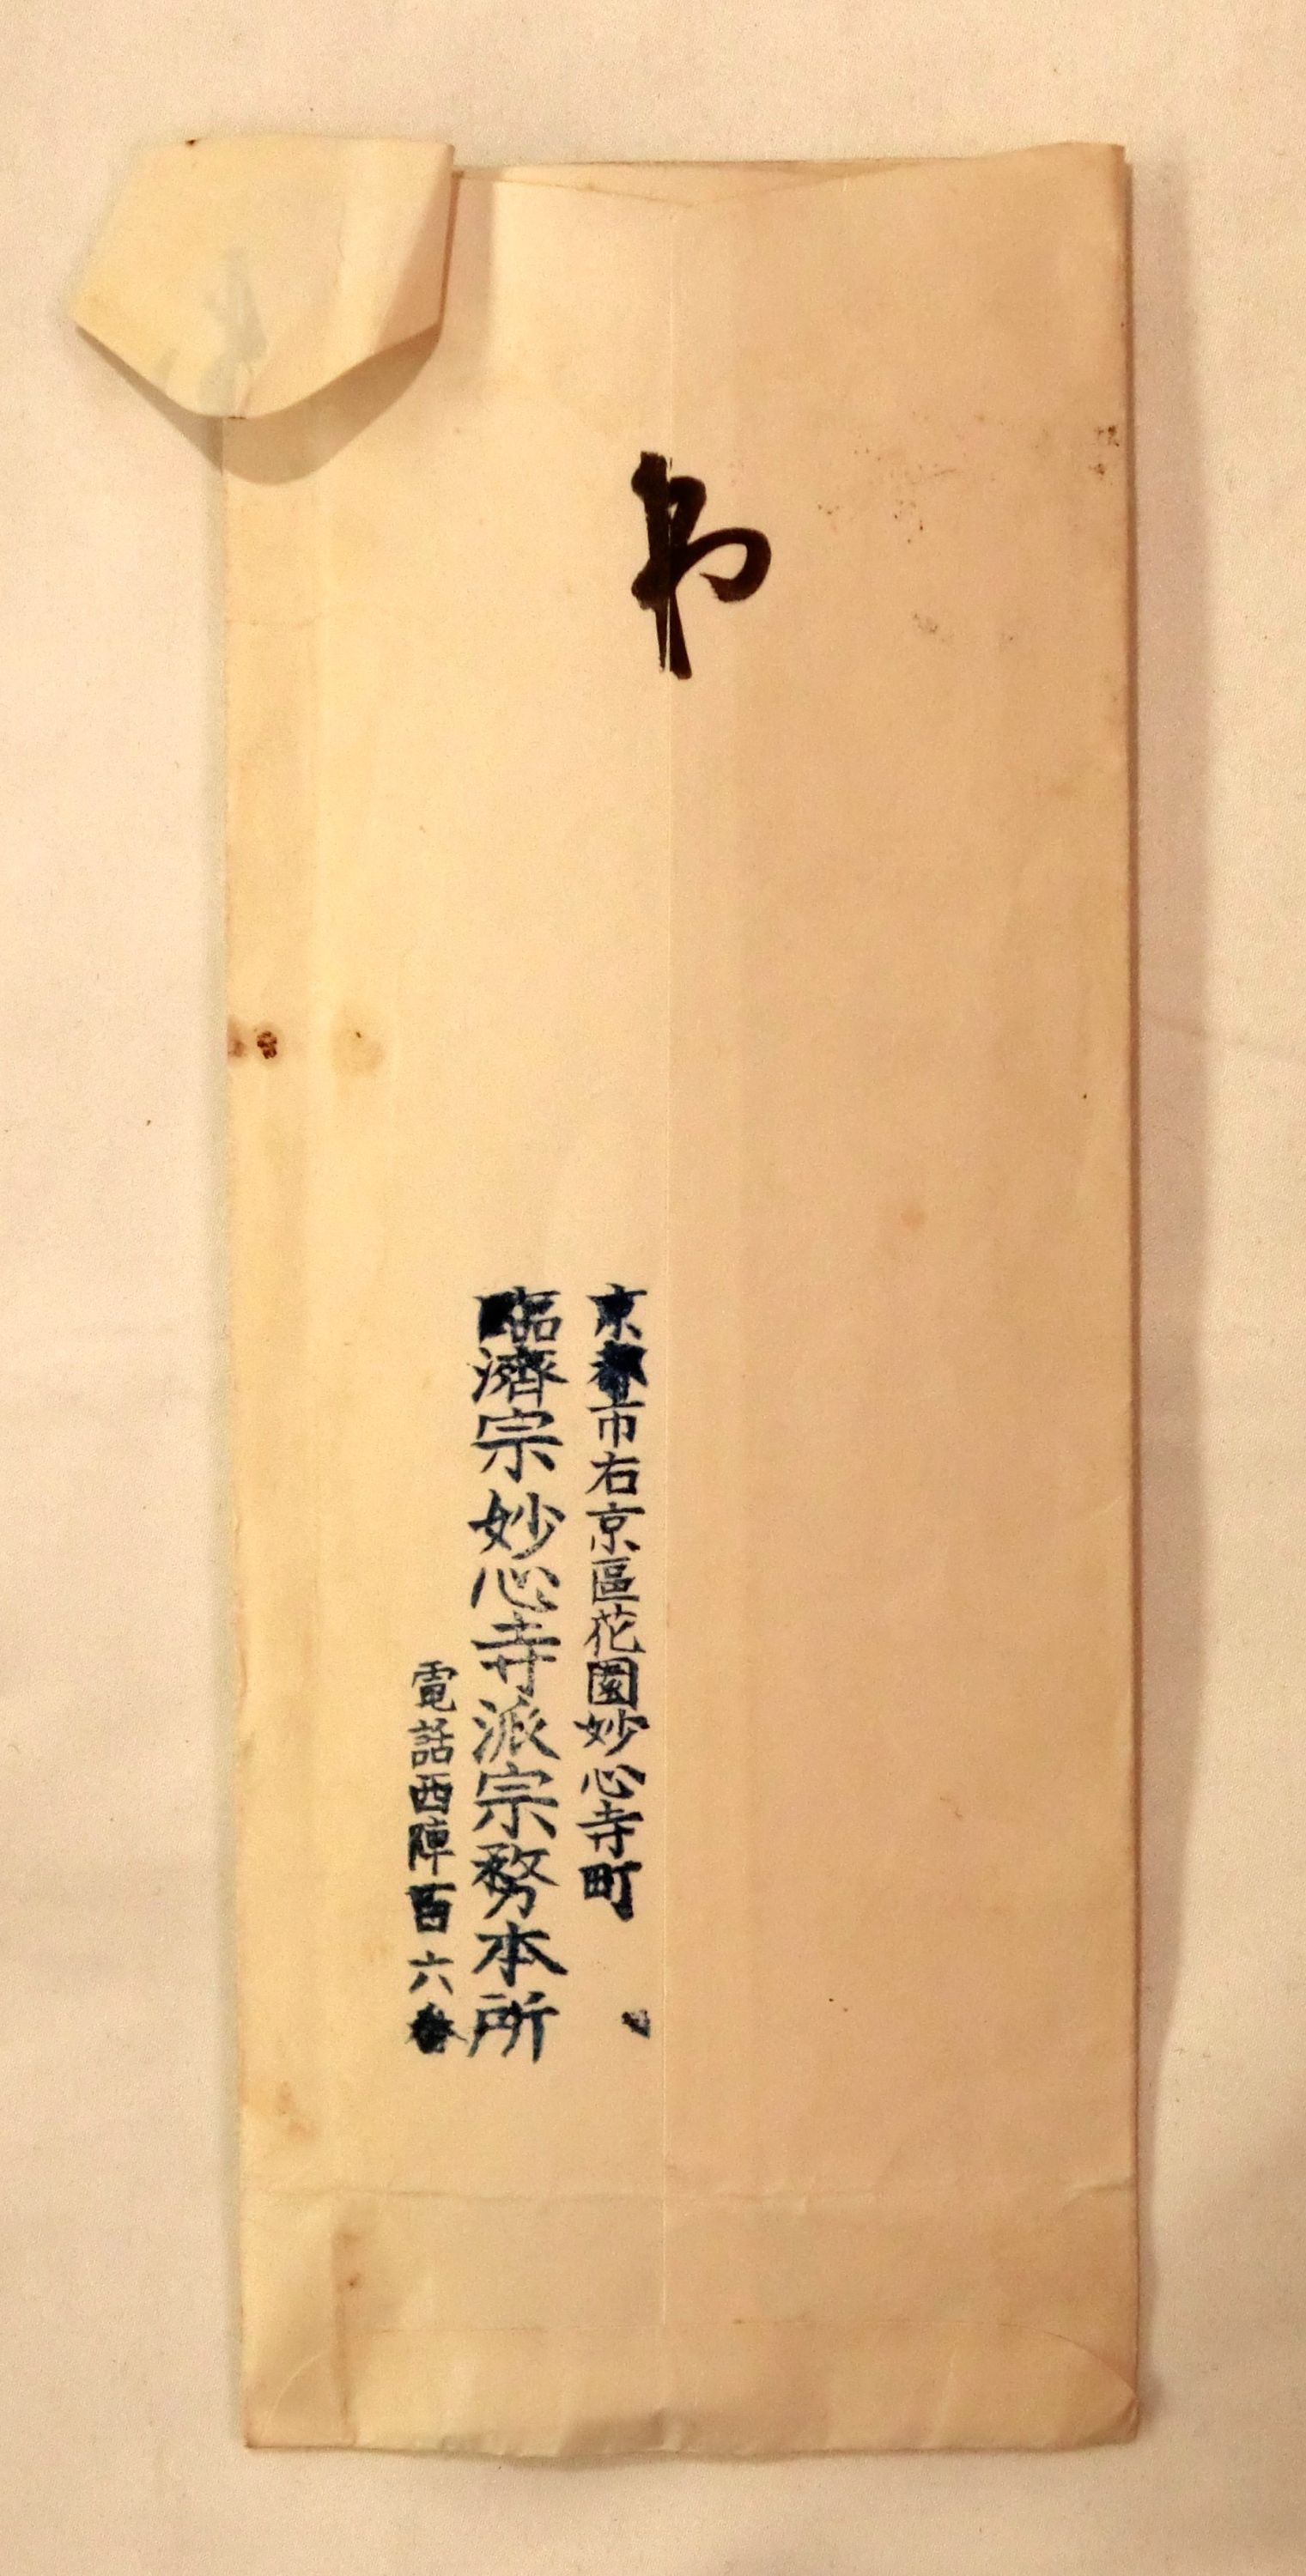 京都市右京區花園妙心寺町
臨濟宗妙心寺派宗務本所
電話西陣百六番